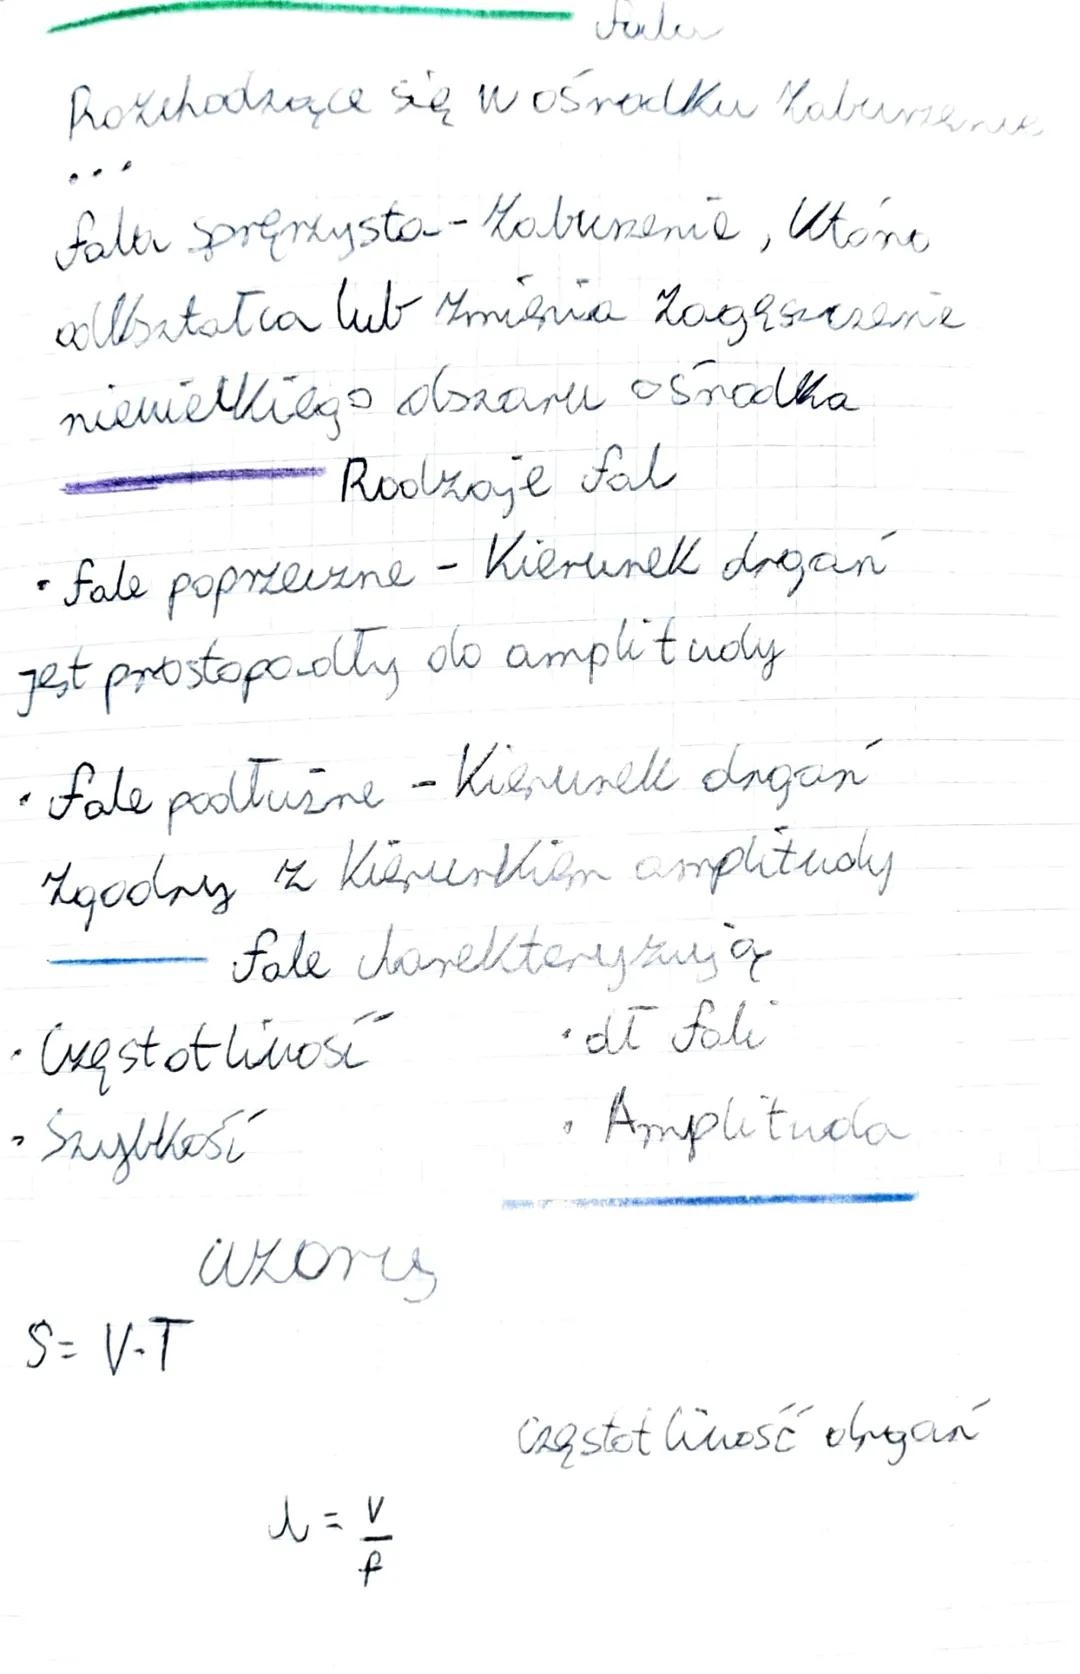 fala
Rozchodzące się w ośrodku zaburzenie
...
fala sprężysta - zaburzenie, które
odkształca lub zmienia zagęszczenie
niewielkiego obszaru ośrodka
Rodzaje fal
• fale poprzeczne - Kierunek drgań
jest prostopadły do amplitudy
• fale podłużne - Kierunek drgań
zgodny z kierunkiem amplitudy
fale charekteryzują
• Częstotliwość • dł fali
• Szybkość • Amplituda
wzory
S = V·T
częstotliwość drgań
λ = V/f